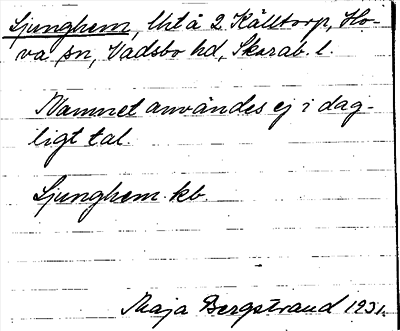 Ljunghem, lht å 2 Källtorp, Ho-
va sn, Vadsbo hd, Skarab. l.
Namnet användes ej i dag-
ligt tal.
Ljunghem. kb.
Maja Bergstrand 1931.